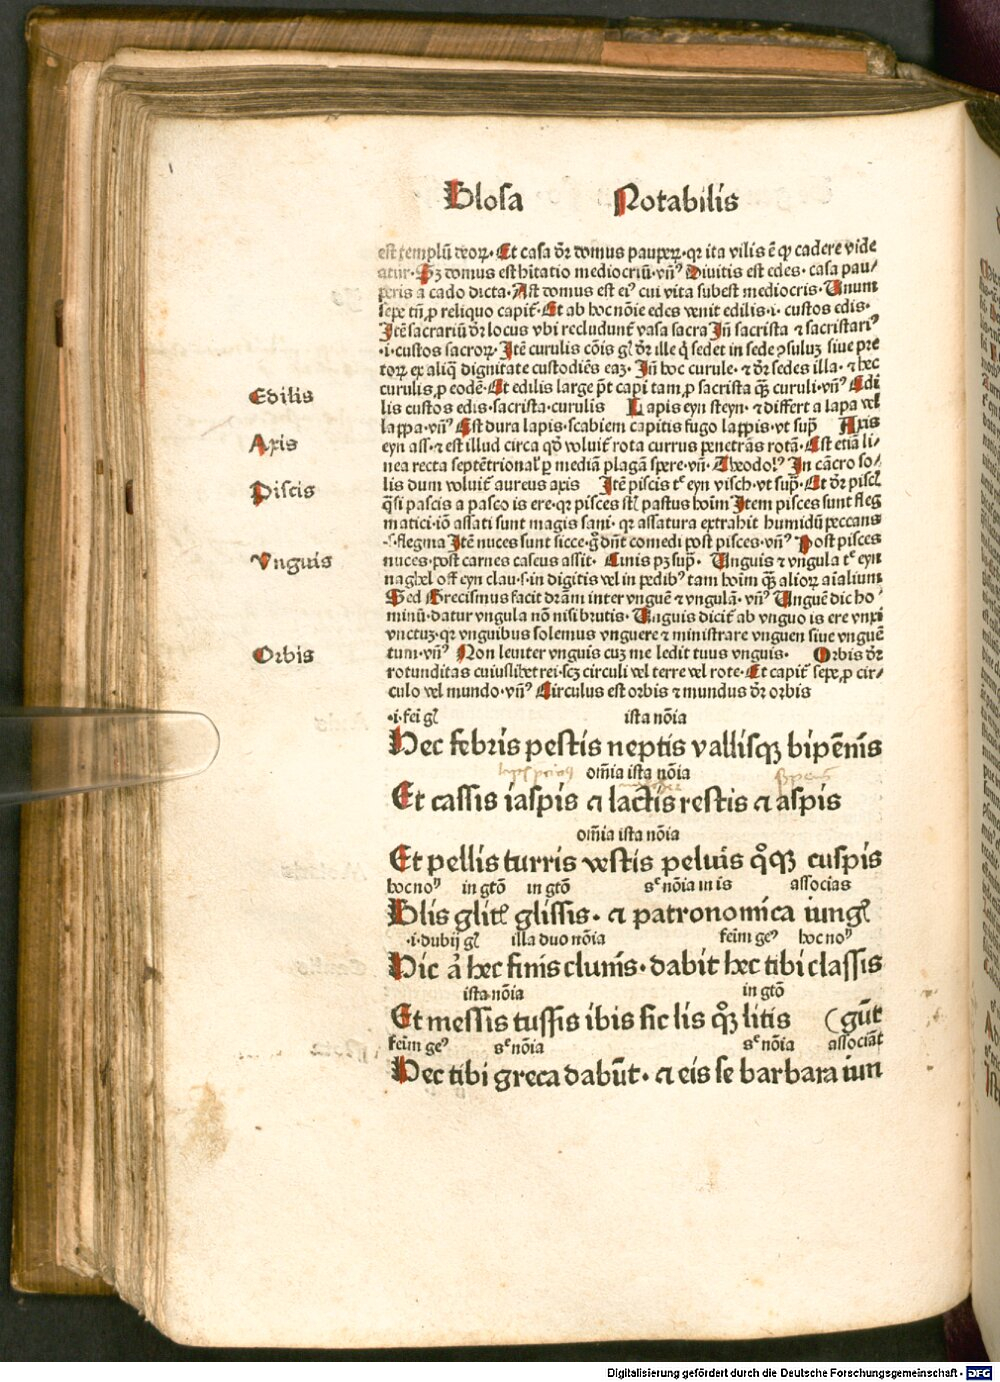 Glosa Notabilis
est templū deoꝝ. Et casa dr̄ domus pauperꝝ. qꝛ ita vilis ē ꝙ cadere vide
atur. Sꝫ domus est hītatio mediocriū. vn̄ Diuitis est edes. casa pau/
peris a cado dicta. Ast domus est eiꝰ cui vita subest mediocris. Unum
sepe tn̄ ꝓ reliquo capit᷑. Et ab hoc nōie edes venit edilis .i. custos edis.
Itē sacrariū dr̄ locus vbi recludunt᷑ vasa sacra Jn̄ sacrista ⁊ sacristariꝰ
.i. custos sacroꝝ. Itē curulis cōis gl̄ dr̄ ille q̇ sedet in sede ꝯsuluꝫ siue pre
toꝝ ex aliq̄ dignitate custodiēs eaꝫ. Jn̄ hoc curule. ⁊ dr̄ sedes illa. ⁊ hec
curulis ꝓ eodē. Et edilis large pt̄ capi tam ꝓ sacrista q̄ꝫ curuli. vn̄ Edi
Edilis
lis custos edis. sacrista. curulis Lapis eyn steyn. ⁊ differt a lapa vel
lappa. vn̄ Est dura lapis. scabiem capitis fugo lappis. vt supͣ Axis
Axis
eyn ass. ⁊ est illud circa qd̄ voluit᷑ rota currus penetrās rotā. Est etiā li/
nea recta septētrional̓ ꝑ mediā plagā spere. vn̄. Theodolꝰ In cācro so/
Piscis
lis dum voluit᷑ aureus axis Itē piscis tͤ eyn visch. vt supͣ. Et dr̄ piscꝭ
q̄si pascis a pasco is ere. qꝛ pisces st̄ pastus hoīm Item pisces sunt fleg
matici. iō assati sunt magis sani. qꝛ assatura extrahit humidū peccans
.s. flegma Itē nuces sunt sicce. g° dn̄t comedi post pisces. vn̄ Post pisces
Vnguis
nuces. post carnes caseus assit. Cinis pꝫ supͣ. Unguis ⁊ vngula tͤ eyn
naghel off eyn clau. s. in digitis vel in pedibꝰ tam hoīm q̄ꝫ alioꝝ aīalium
Sed Grecismus facit dr̄am inter vnguē ⁊ vngulā. vn̄ Unguē dic ho
minū. datur vngula nō nisi brutis. Unguis dicit᷑ ab vnguo is ere vnxi
vnctuꝫ. qꝛ vnguibus solemus vnguere ⁊ ministrare vnguen siue vnguē
Orbis
tum. vn̄ Non leuiter vnguis cuꝫ me ledit tuus vnguis. Orbis dr̄
rotunditas cuiuslibet rei. scꝫ circuli vel terre vel rote. Et capit᷑ sepe ꝓ cir/
culo vel mundo. vn̄ Circulus est orbis ⁊ mundus dr̄ orbis
.i. fei gl̄ ista nōia
Hec febris pestis neptis vallisqꝫ bipēnis
om̄ia ista nōia
Et cassis iaspis a lactis restis a aspis
om̄ia ista nōia
Et pellis turris vestis peluis q̊qꝫ cuspis
hoc noͫ in gtō in gtō sͤ nōia in is associas
Glis glitꝭ glissis. a patronomica iungꝭ
.i. dubij gl̄ illa duo nōia feīni geͬ hoc noͫ
Hic ā hec finis clunis. dabit hec tibi classis
ista nōia in gtō
Et messis tussis ibis sic lis q̊ꝫ litis (gūt
feīni geͬ sͤ nōia sͤ nōia associāt
Hec tibi greca dabūt. a eis se barbara iun
Digitalisierung gefördert durch die Deutsche Forschungsgemeinschaft - DFG